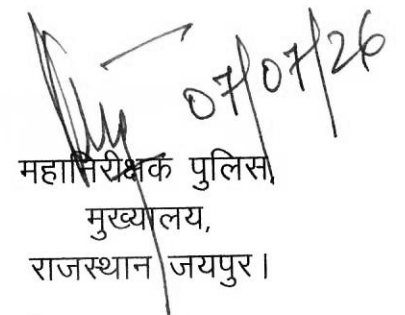 07/07/26
महानिरीक्षक पुलिस,
मुख्यालय,
राजस्थान जयपुर।